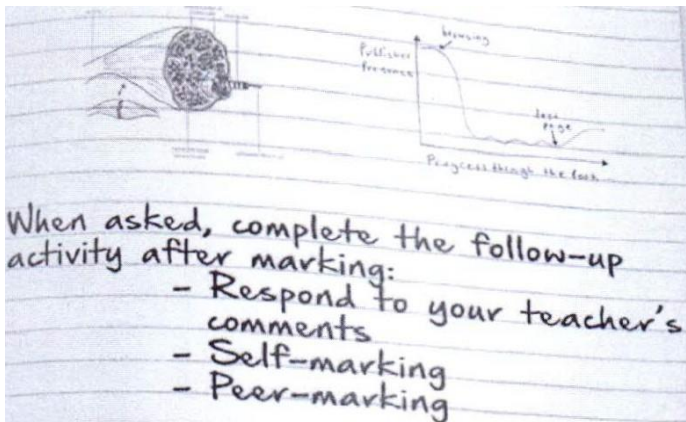 browsing
Publisher
Presence
last
page
Progress though the book
When asked, complete the follow-up
activity after marking:
- Respond to your teacher's
comments
- Self-marking
- Peer-marking